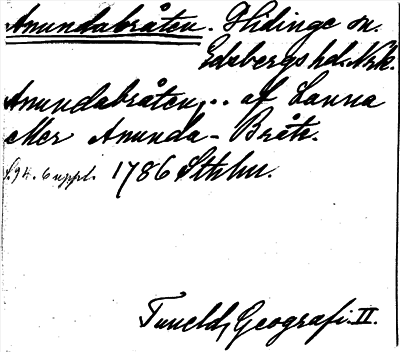 Anundabråten. Hidinge sn.
Edsbergs hd. Nrk.
Anundabråten, .. af Lanna
eller Anunda-Bråte.
s. 94. 6 uppl. 1786 Sthlm.
Tuneld, Geografi. II.